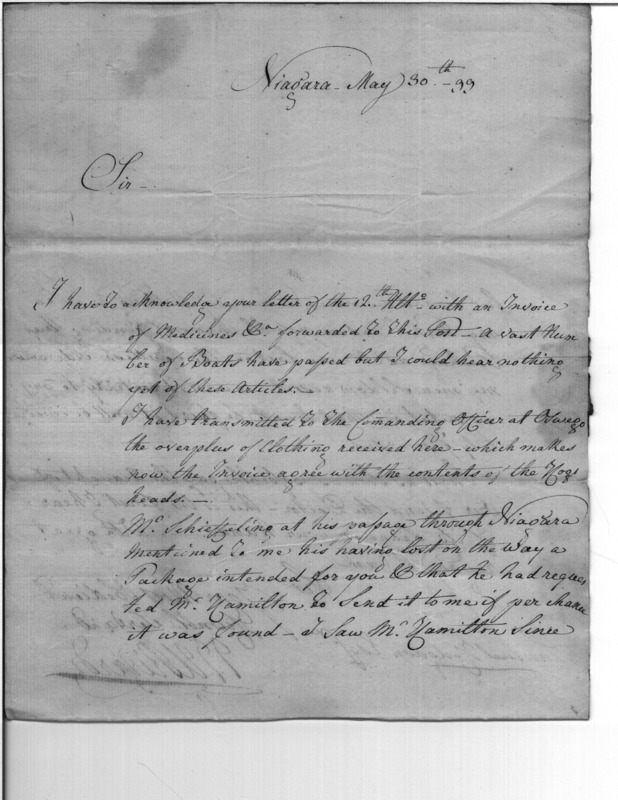 Niagara - May 30th - 99
Sir -
I have to acknowledge your letter of the 12th Ulto with an Invoice
of Medicines &c forwarded to this Post - a vast Num
ber of Boats have passed but I could hear nothing
yet of these Articles. -
I have transmitted to the Comanding Officer at Oswego
the overplus of Clothing received here - which makes
now the Invoice agree with the contents of the Hogs
heads. -
Mr. Schieffeling at his passage through Niagara
mentioned to me his having lost on the way a
Package intended for you & that he had reques
ted Mr. Hamilton to Send it to me if per chance
it was found - I Saw Mr. Hamilton Since